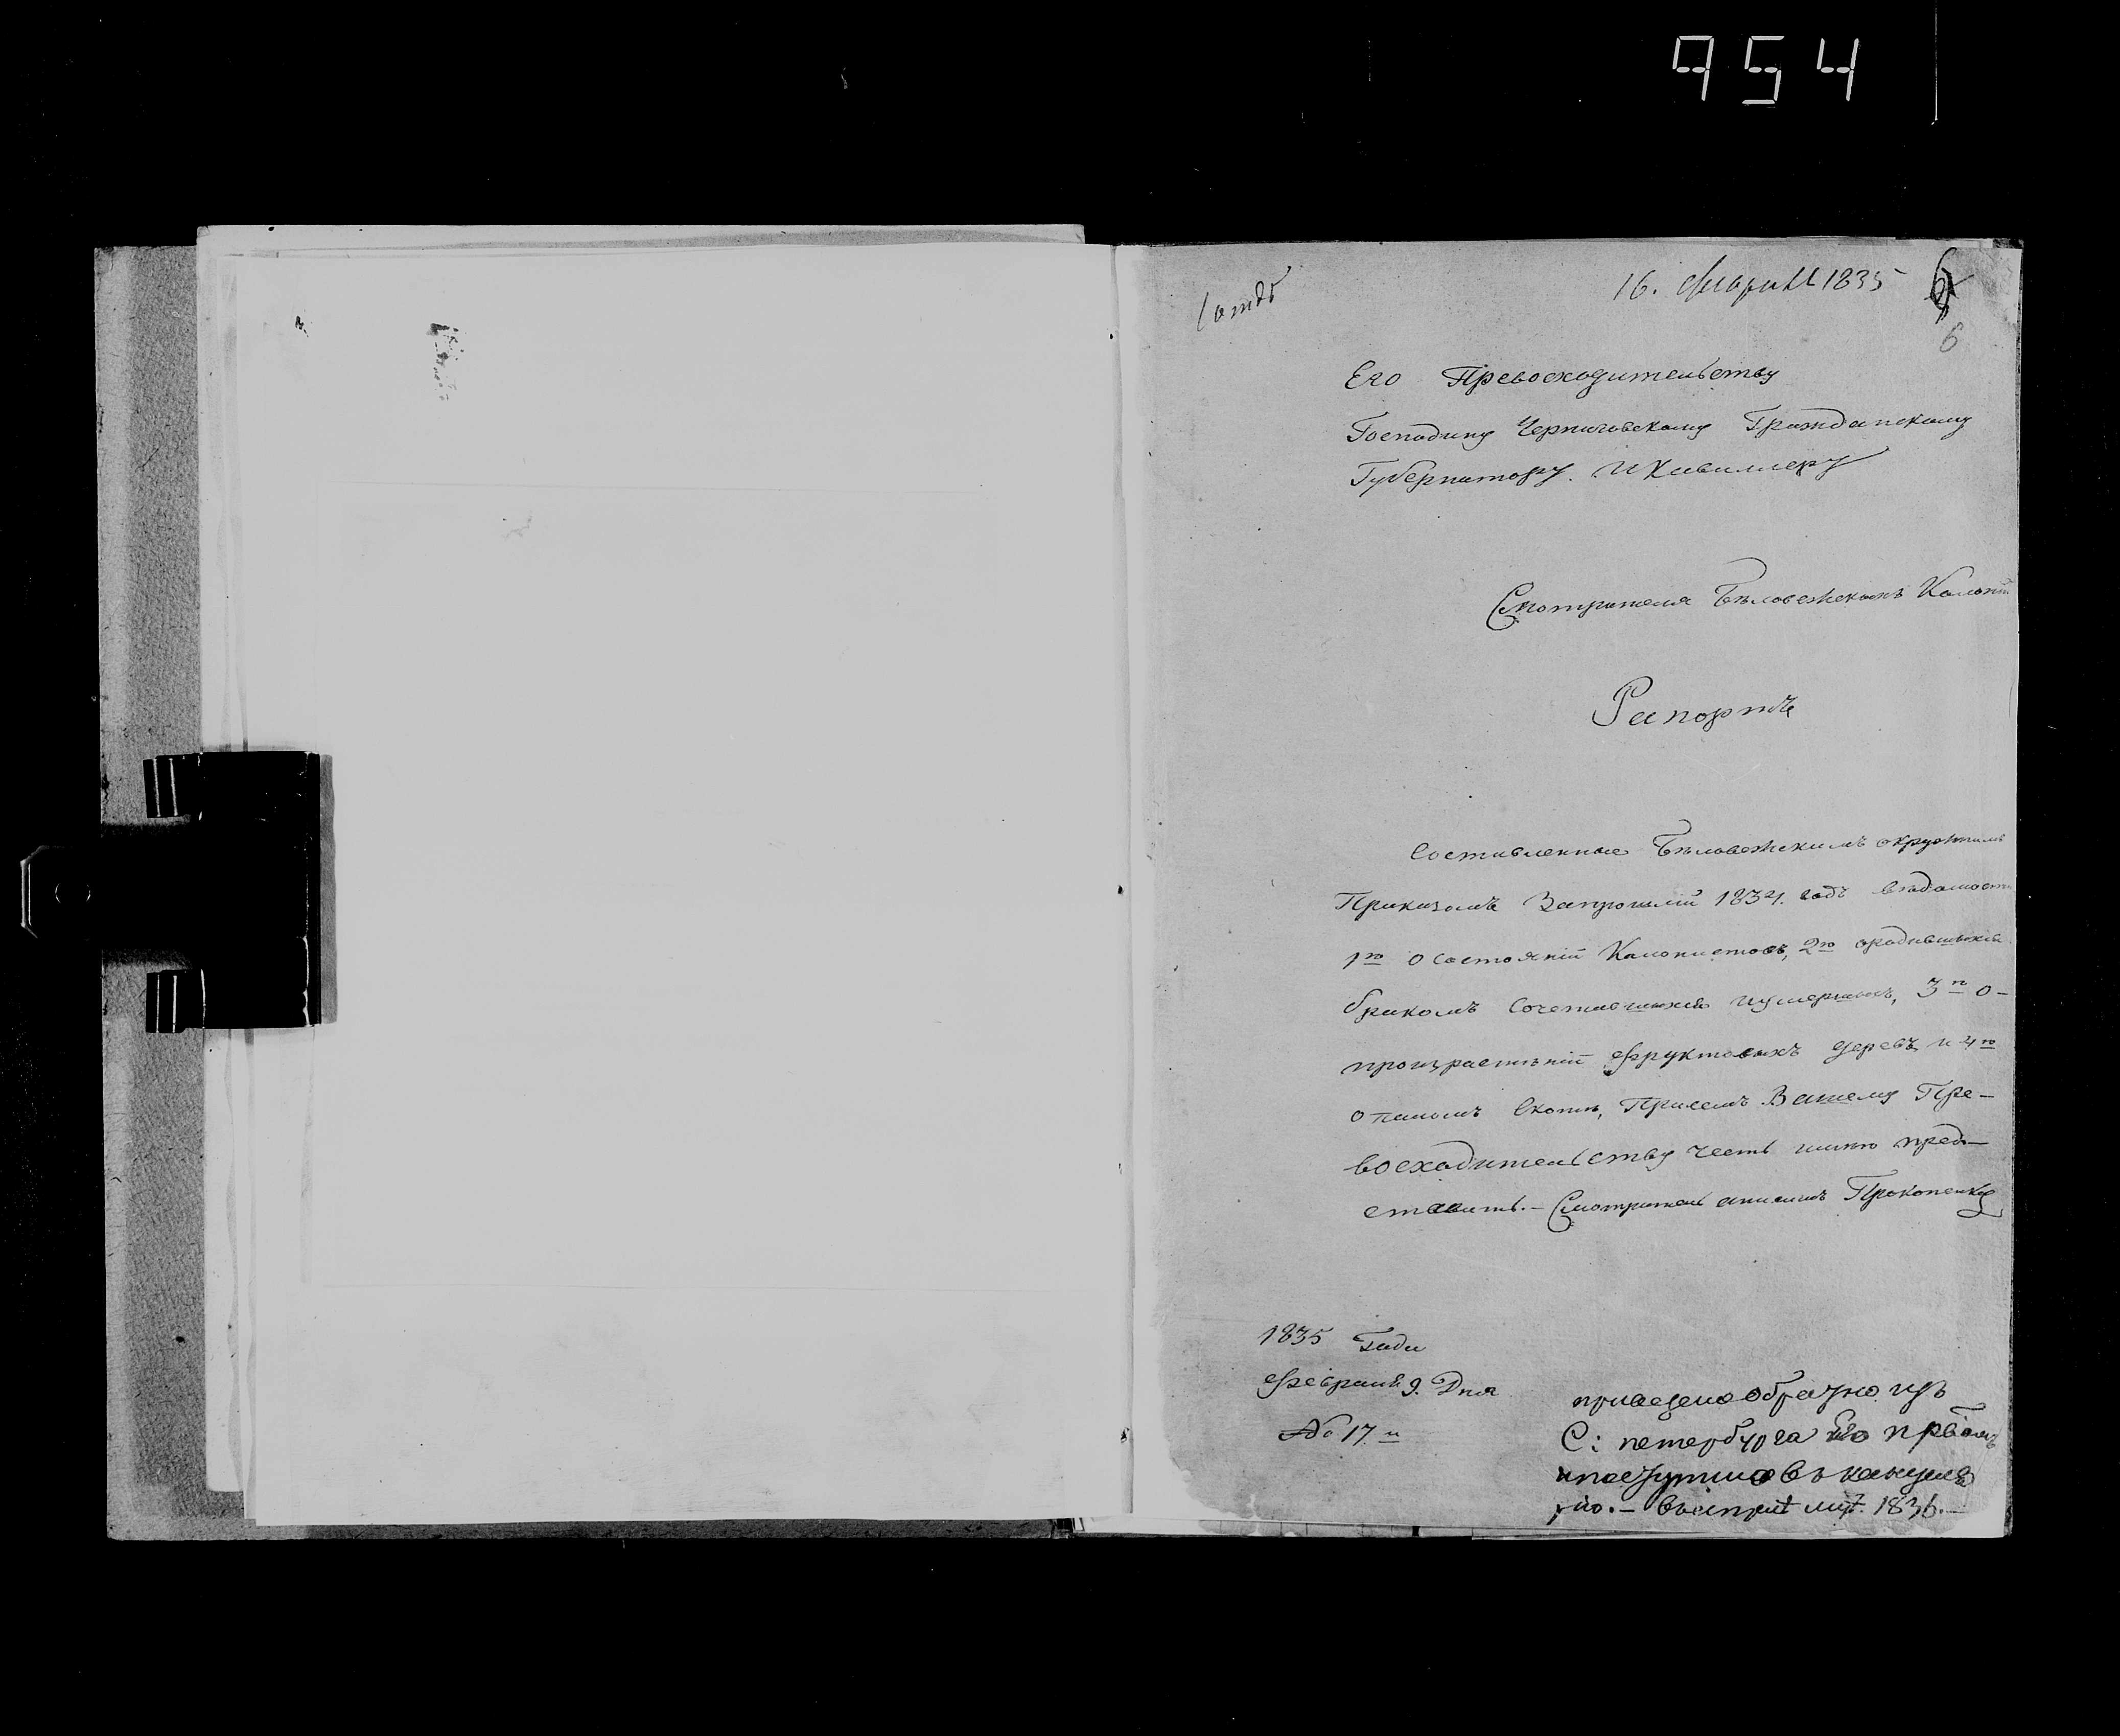 954
16. февраля 1835
6
Его Превосходительству
Господину Черниговскому Гражданскому
Губернатору и Кавалеру
Смотрителя Беловежских Колоній
Рапортъ
Составленные Беловежскимъ окружнымъ
Приказомъ Запрошлий 1834. годъ ведомости
1го О Состояніи Колонистовъ, 2го ородившихся
бракомъ Сочетавшихся иумершихъ, 3го о-
произрастеніи фруктовыхъ деревъ, и 4го
о паломъ Скоте, Присемъ Вашему Пре-
восходительству честь имею пред-
ставить. - Смотритель Прокопенко
1835 Года
Февраля 9. Дня
№ 17.й
обратно изъ
С: петербурга Его
въ
рію. - 1836. -